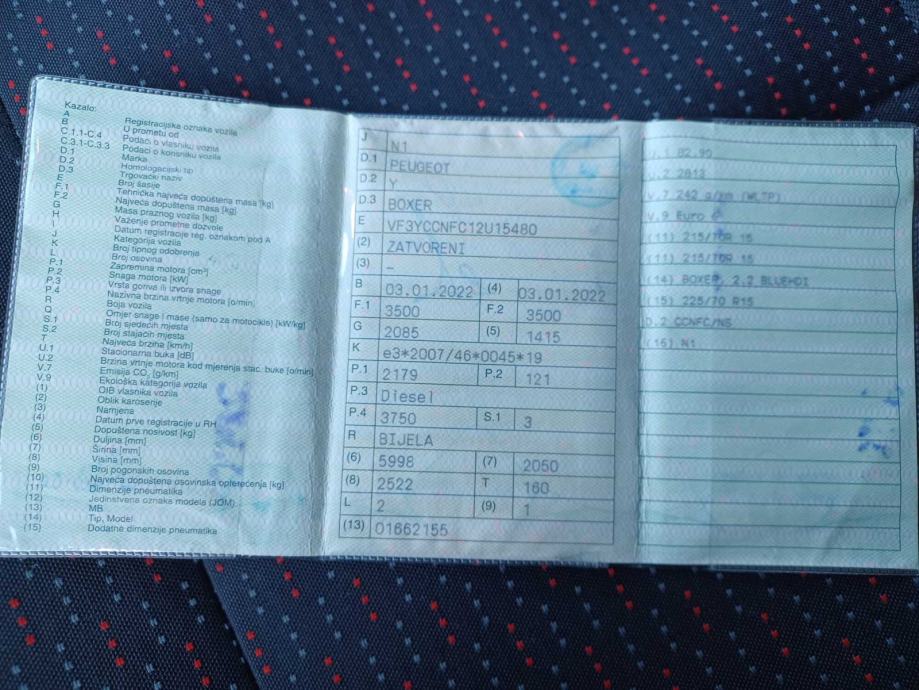 Kazalo:
A Registracijska oznaka vozila
B U prometu od
C.1.1-C.4 Podaci o vlasniku vozila
C.3.1-C.3.3 Podaci o korisniku vozila
D.1 Marka
D.2 Homologacijski tip
D.3 Trgovački naziv
E Broj šasije
F.1 Tehnička najveća dopuštena masa [kg]
F.2 Najveća dopuštena masa [kg]
G Masa praznog vozila [kg]
H Važenje prometne dozvole
I Datum registracije reg. oznakom pod A
J Kategorija vozila
K Broj tipnog odobrenja
L Broj osovina
P.1 Zapremina motora [cm³]
P.2 Snaga motora [kW]
P.3 Vrsta goriva ili izvora snage
P.4 Nazivna brzina vrtnje motora [o/min]
R Boja vozila
Q Omjer snage i mase (samo za motocikle) [kW/kg]
S.1 Broj sjedećih mjesta
S.2 Broj stajaćih mjesta
T Najveća brzina [km/h]
U.1 Stacionarna buka [dB]
U.2 Brzina vrtnje motora kod mjerenja stac. buke [o/min]
V.7 Emisija CO₂ [g/km]
V.9 Ekološka kategorija vozila
(1) OIB vlasnika vozila
(2) Oblik karoserije
(3) Namjena
(4) Datum prve registracije u RH
(5) Dopuštena nosivost [kg]
(6) Duljina [mm]
(7) Širina [mm]
(8) Visina [mm]
(9) Broj pogonskih osovina
(10) Najveća dopuštena osovinska opterećenja [kg]
(11) Dimenzije pneumatika
(12) Jedinstvena oznaka modela (JOM)
(13) MB
(14) Tip, Model
(15) Dodatne dimenzije pneumatika
J N1
D.1 PEUGEOT
D.2 Y
D.3 BOXER
E VF3YCCNFC12U15480
(2) ZATVORENI
(3) –
B 03.01.2022 (4) 03.01.2022
F.1 3500 F.2 3500
G 2085 (5) 1415
K e3*2007/46*0045*19
P.1 2179 P.2 121
P.3 Diesel
P.4 3750 S.1 3
R BIJELA
(6) 5998 (7) 2050
(8) 2522 T 160
L 2 (9) 1
(13) 01662155
U.1 82.90
U.2 2812
V.7 242 g/km (WLTP)
V.9 Euro
(11) 215/70R 15
(11) 215/70R 15
(14) BOXER, 2.2 BLUEHDI
(15) 225/70 R15
D.2 CCNFC/N5
(16) N1